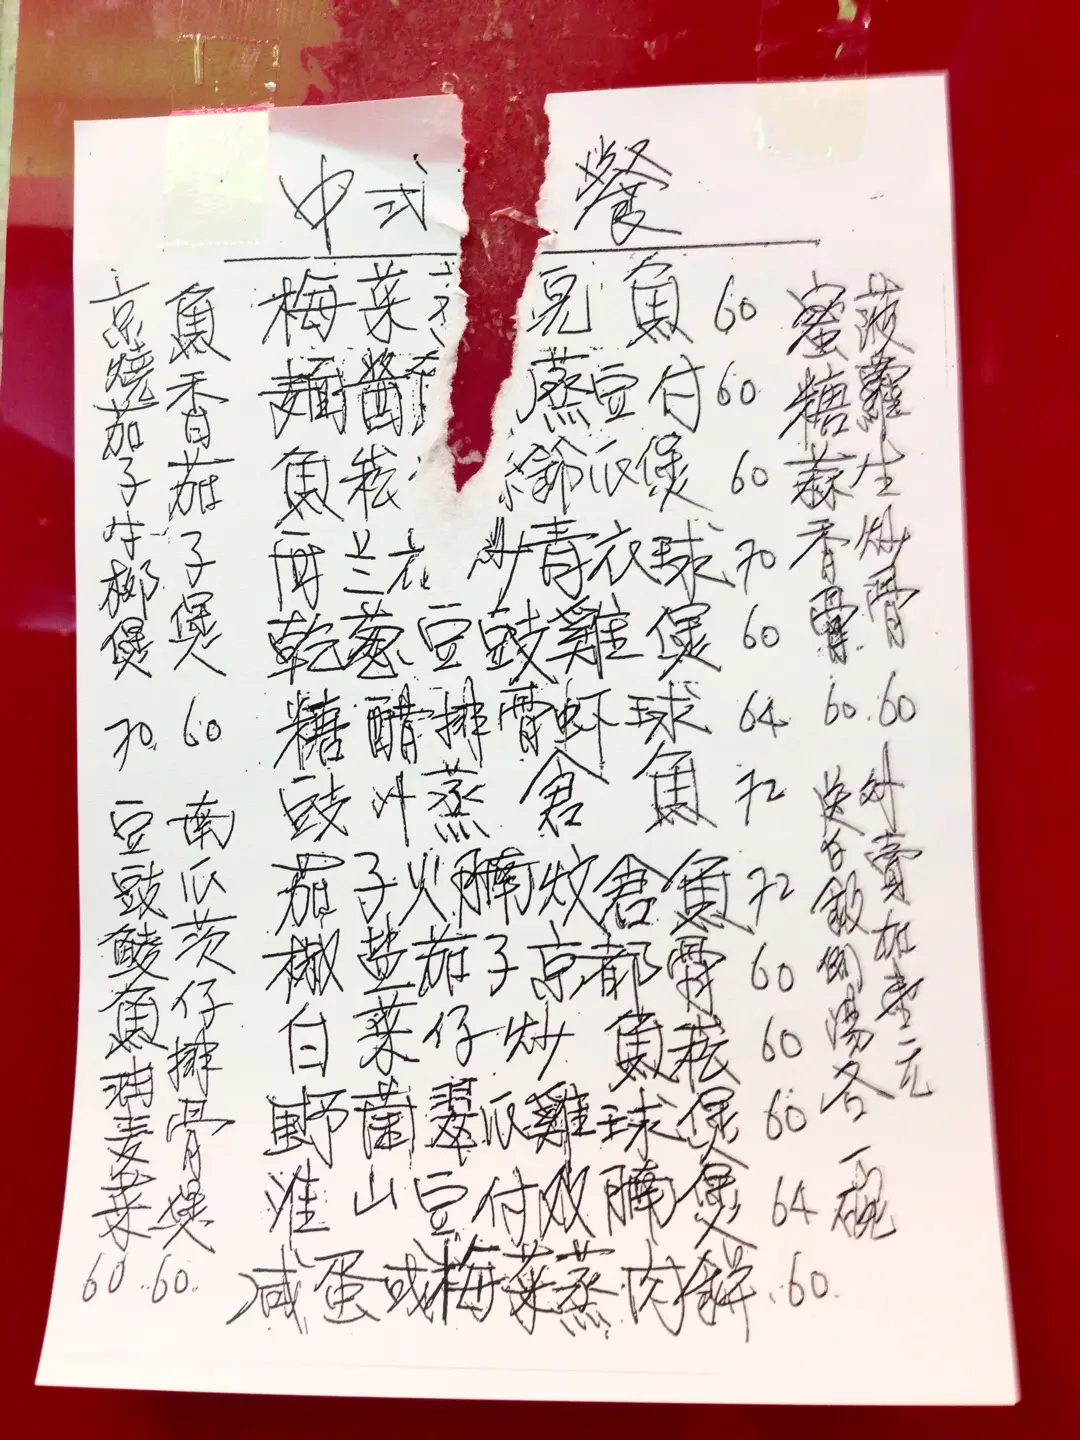 中式 餐
梅菜 鱼 60
麵醬 蒸豆付 60
魚崧 瓜煲 60
芥兰 炒青衣球 70
乾葱豆豉雞煲 60
糖醋排骨虾球 64
豉汁蒸倉魚 72
茄子火腩炆倉魚 72
椒盐茄子京都骨 60
白菜仔炒魚崧 60
野菌翠瓜雞球煲 60
淮山豆付双腩煲 64
咸蛋或梅菜蒸肉餅 60
菠蘿生炒骨 60
蜜糖蒜香骨 60
外賣加壹元
送白飯例湯各一碗
魚香茄子煲 60
京燒茄子牛柳煲 70
南瓜茨仔排骨煲 60
豆豉鯪魚油麦菜 60